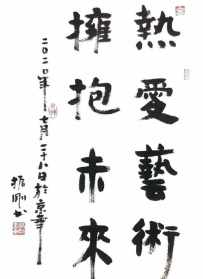 熱愛藝術
擁抱未來
二〇二〇年七月二十八日於京華
振剛書